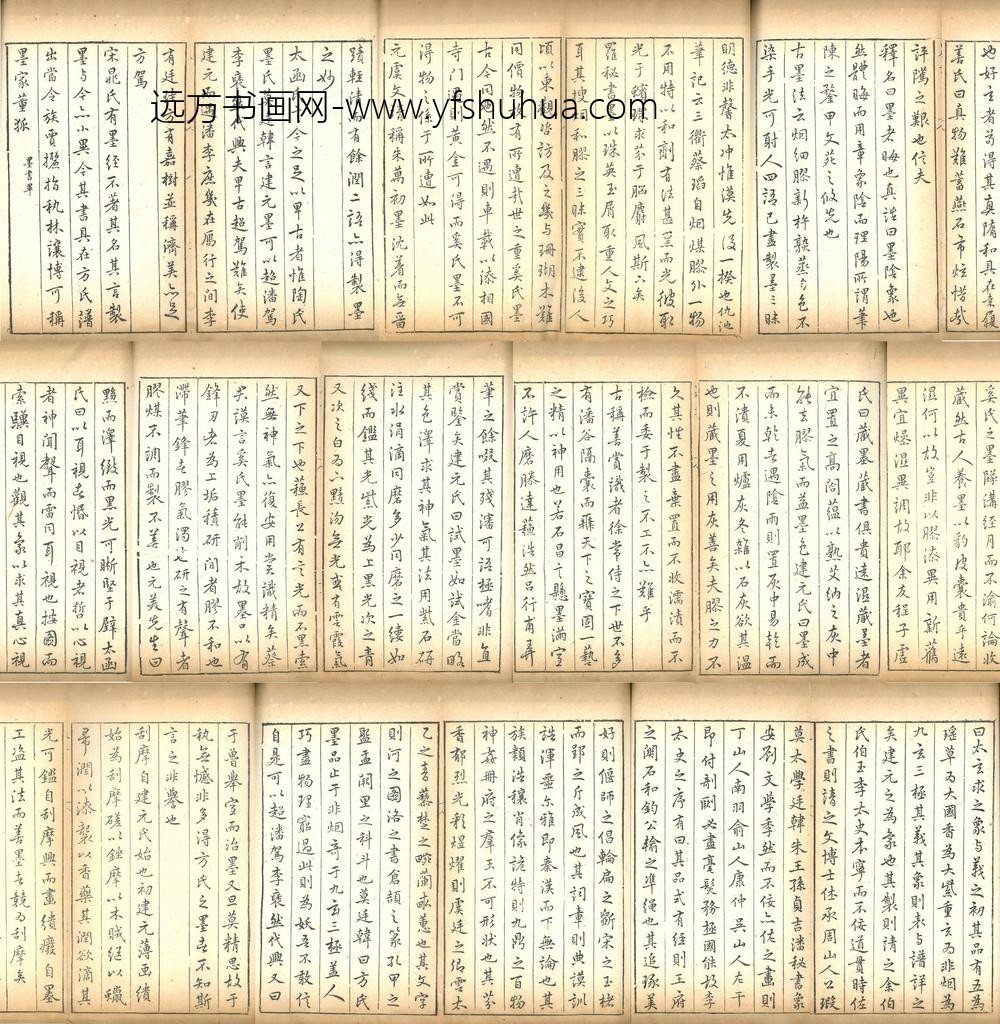 也好主者苟得其真隋和具在玄履
善氏曰真物難蓄燕石市炫惜哉
評隲之艱也信夫
釋名曰墨者晦也真誥曰墨陰象也
然體晦而用章象陰而理陽所謂筆
陳之鍪甲文苑之攸先也
古墨法云烟細膠新杵熟蒸勻色不
染手光可射人四語已盡製墨三昧
明德非馨太冲惟漠先後一揆也仇池
筆記云三衢蔡瑫自烟煤膠外一物
不用特以和劑有法甚黑而光彼取
光于求芬于腦麝風斯六矣
羅秘書以珠英玉屑取重人文之巧
耳其搜和膠之三昧實不逮後人
頃以東觀咨訪及之幾与珊瑚木難
同價物有所遭哉世之重奚氏墨
古今同然不遇則車載以漆相國
寺門則黄金可得而奚氏墨不可
得物之係于所遭如此
元虞文稱朱萬初墨沈著而無畱
蹟輕清而有餘潤二語亦得製墨
之妙
太函今之足以卑古者惟陶氏
墨氏莫廷韓言建元墨可以超潘駕
李裹然代興夫卑古超駕難矣使
建元遇潘李庶幾在鴈行之間李
有廷珪有嘉樹並稱濟美亦足
方駕
宋晁氏有墨經不著其名其言製
墨与今亦小異今其書具在方氏譜
出當令族賈攝指執林讓博可稱
墨家董狐
墨書畢
远方书画网-www.yfshuhua.com
奚氏之墨隊溝經月而不渝何論收
藏然古人養墨以豹皮囊貴乎遠
濕何以故豈非以膠漆異用新舊
異宜燥濕異調故耶余友程子虛
氏曰藏墨藏書俱貴遠濕藏墨者
宜置之高閣蘊以熟艾納之灰中
能去膠氣而益墨色建元氏曰墨成
而未乾者遇陰雨則置灰中易乾而
不潰夏用爐灰冬雜以石灰欲其温
也則藏墨之用灰善矣夫膠之力不
久其性不盡棄置而不收濡漬而不
撿而委于製之不工不亦難乎
古稱善賞識者徐常侍之下世不多
有潘谷隔囊而雖天下之寶固一藝
之精以神用也若石昌言懸墨滿室
不許人磨滕達蘇浩然呂行甫弄
筆之餘啜其殘瀋可語極嗜非真
賞鑒矣建元氏曰試墨如試金當略
其色澤求其神氣其法用紫石研
注水涓滴同磨多少同磨之一縷如
线而鑑其光紫光為上黑光次之青
又次之白為下黯無光或有雲霞氣
又下之下也蘇長公有言光而不黑索
然無神氣亦復安用賞識精矣蔡
謨言奚氏墨能削木放墨以有
鋒刃者為上垢積研間者膠不和也
滯筆鋒者膠氣濁也研之有聲者
膠煤不調而製不美也元美先生曰
黯而澤緻而黑光可晰堅于礕太函
氏曰以耳視者惛以目視者哲以心視
者神聞聲而雷同耳視也按圖而
索驥目視也觀其象以求其真心視
曰太玄求之象与義之初其品有五為
瑶草為大國香為大紫重玄為非烟為
九玄三極其義其象則表与譜詳之
矣建元之為象也其製則請之余伯
氏伯玉李太史本寧而不佞道貫時佐
之書則請之文博士休承周山人公瑕
莫太學廷韓朱王孫貞吉潘秘書象
安劉文學季然而不佞亦佐之畫則
丁山人南羽俞山人康仲吳山人左干
即付剞劂必盡毫髮務極國能故李
太史之序有曰其品式有經則王府
之関石和鈞公輸之準繩也其追琢美
好則偃師之倡輪扁之斲宋之玉楮
而郢之斤成風也其詞章則典謨訓
誥渾噩尔雅即秦漢而下無論也其
族類浩穰肖像詭特則九鼎之百物
神姦冊府之羣玉不可形狀也其芬
香郁烈光彩煜燿則虞廷之雲太
乙之青藜楚之畹蘭畞蕙也其文字
則河之圖洛之書倉頡之篆孔甲之
盤盂闕里之科斗也莫廷韓曰方氏
墨品止于非烟竒于九玄三極盖人
巧盡物理窮過此則為妖吾不敢信
自是可以超潘駕李裹然代興又曰
于魯舉室而治墨又旦莫精思故于
執無憾非多得方氏之墨者不知斯
言之非譽也
刮摩自建元氏始也初建元薄画缋
始為刮摩磋以銼摩以木賊經以蠟
帚潤以漆製以香藥其潤欲滴其
光可鑑自刮摩興而畫缋癈自墨
工盗其法而善墨者競為刮摩矣